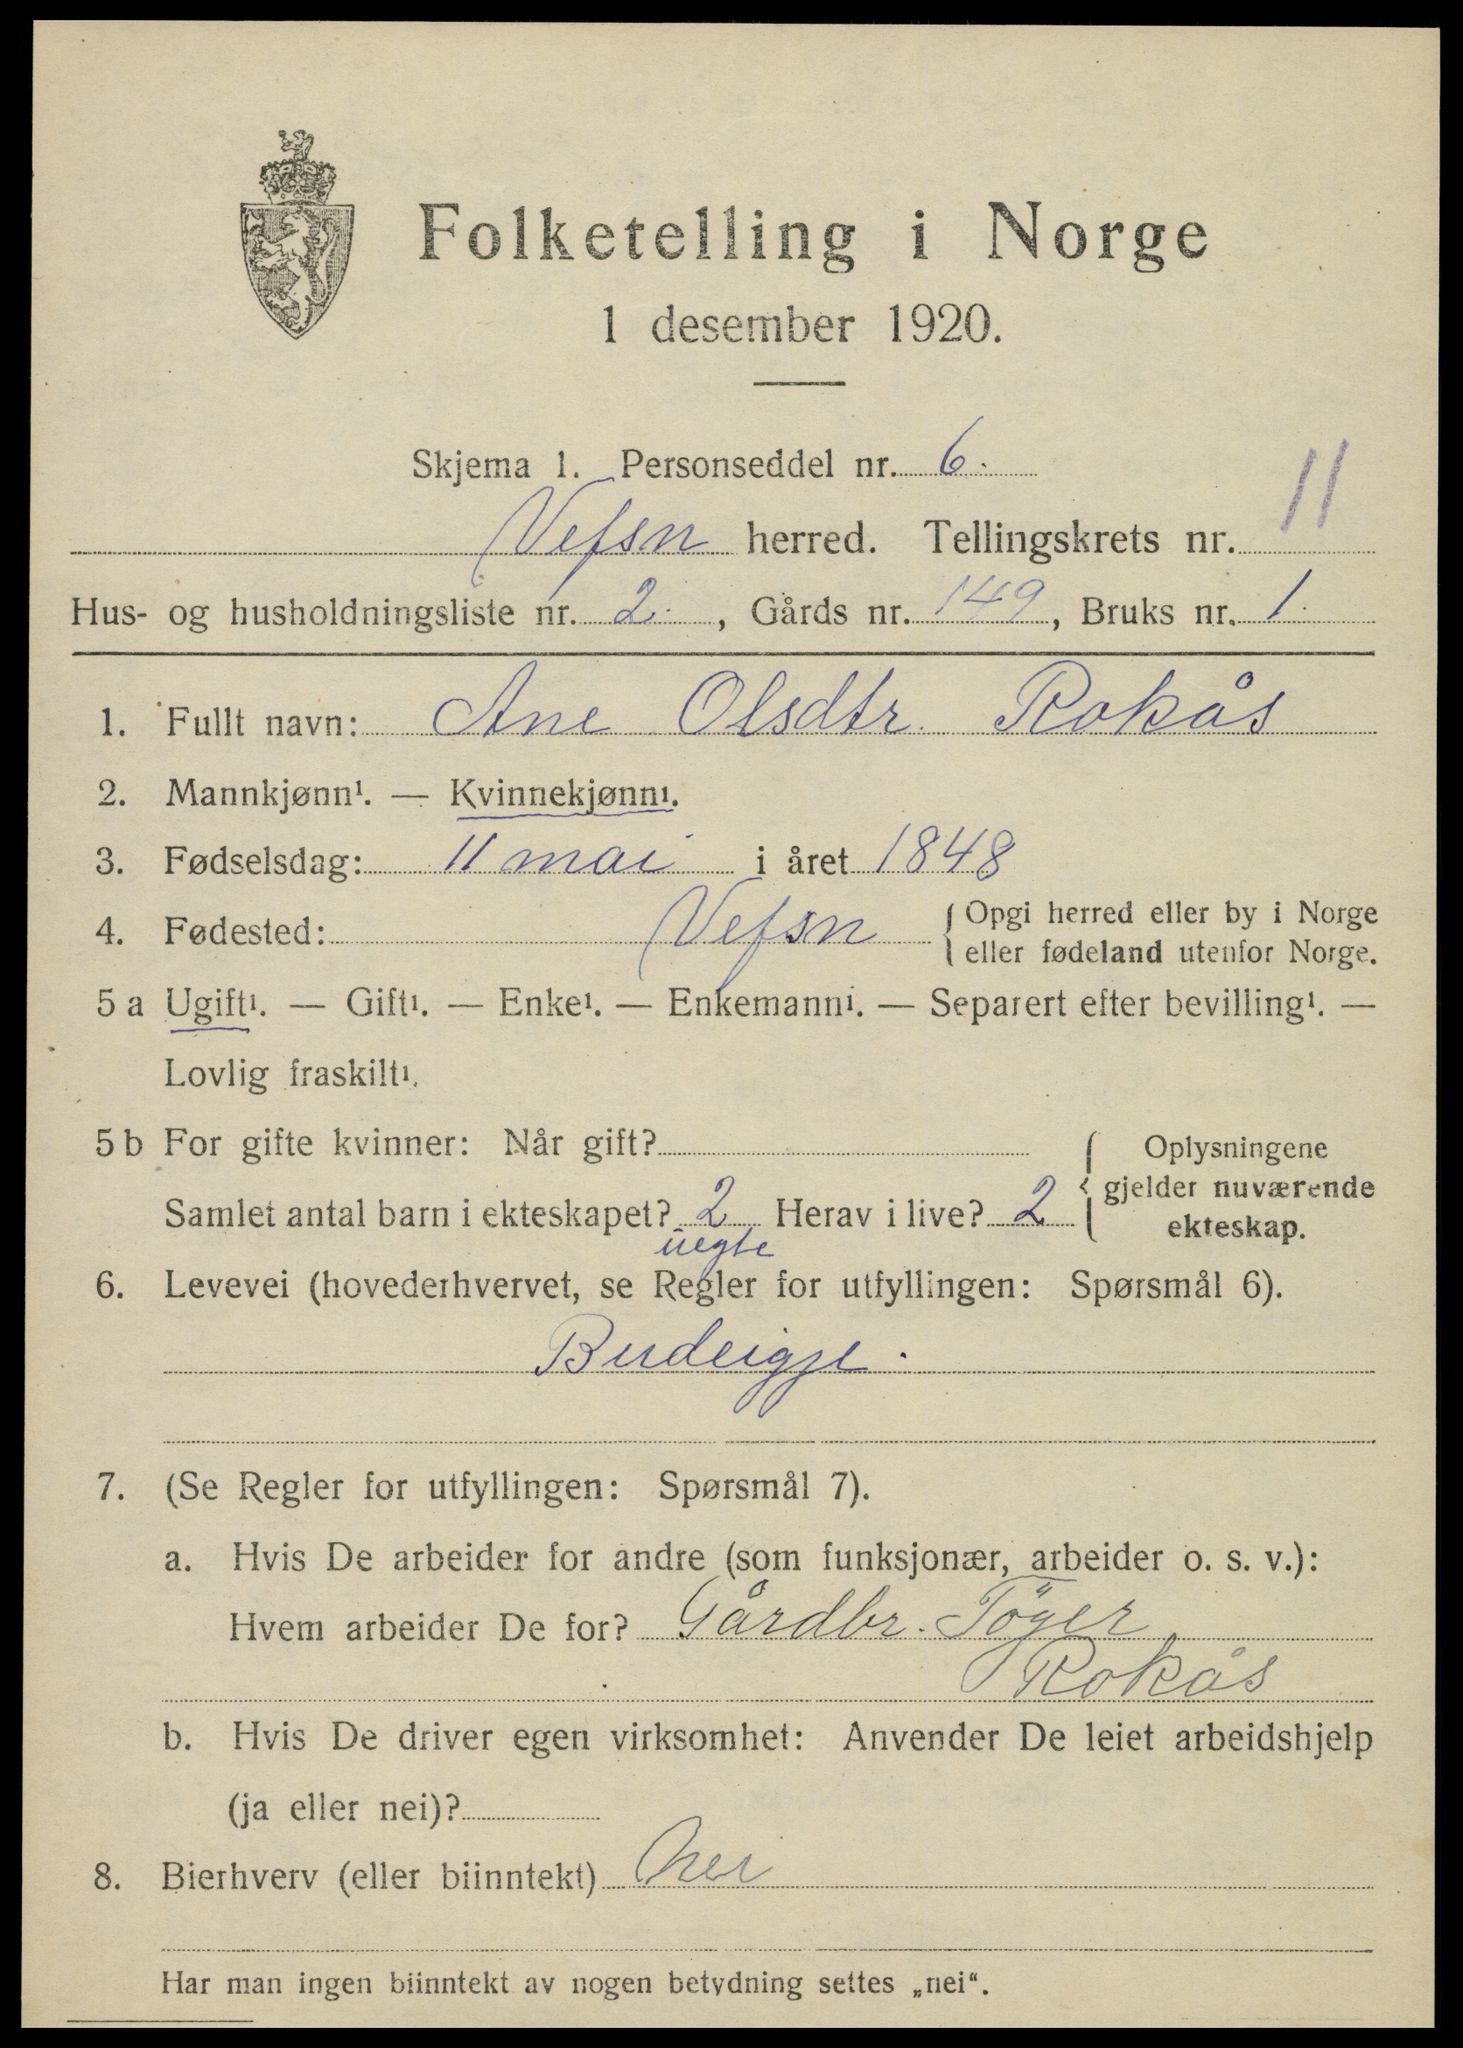 Folketelling i Norge
1 desember 1920.
Skjema 1. Personseddel nr. 6.
Vefsn herred. Tellingskrets nr. 11
Hus- og husholdningsliste nr. 2. , Gårds nr. 149, Bruks nr. 1.
1. Fullt navn: Ane Olsdtr. Rokås
2. Mannkjønn¹. — Kvinnekjønn¹.
3. Fødselsdag: 11 mai i året 1848
4. Fødested: Vefsn { Opgi herred eller by i Norge
eller fødeland utenfor Norge.
5 a Ugift¹. — Gift¹. — Enke¹. — Enkemann¹. — Separert efter bevilling¹. —
Lovlig fraskilt¹.
5 b For gifte kvinner: Når gift? { Oplysningene
Samlet antal barn i ekteskapet? 2 Herav i live? 2 gjelder nuværende
ekteskap.
uegte
6. Levevei (hovederhvervet, se Regler for utfyllingen: Spørsmål 6).
Budeigje.
7. (Se Regler for utfyllingen: Spørsmål 7).
a. Hvis De arbeider for andre (som funksjonær, arbeider o. s. v.):
Hvem arbeider De for? Gårdbr. Töger
Rokås
b. Hvis De driver egen virksomhet: Anvender De leiet arbeidshjelp
(ja eller nei)?
8. Bierhverv (eller biinntekt) nei
Har man ingen biinntekt av nogen betydning settes „nei“.